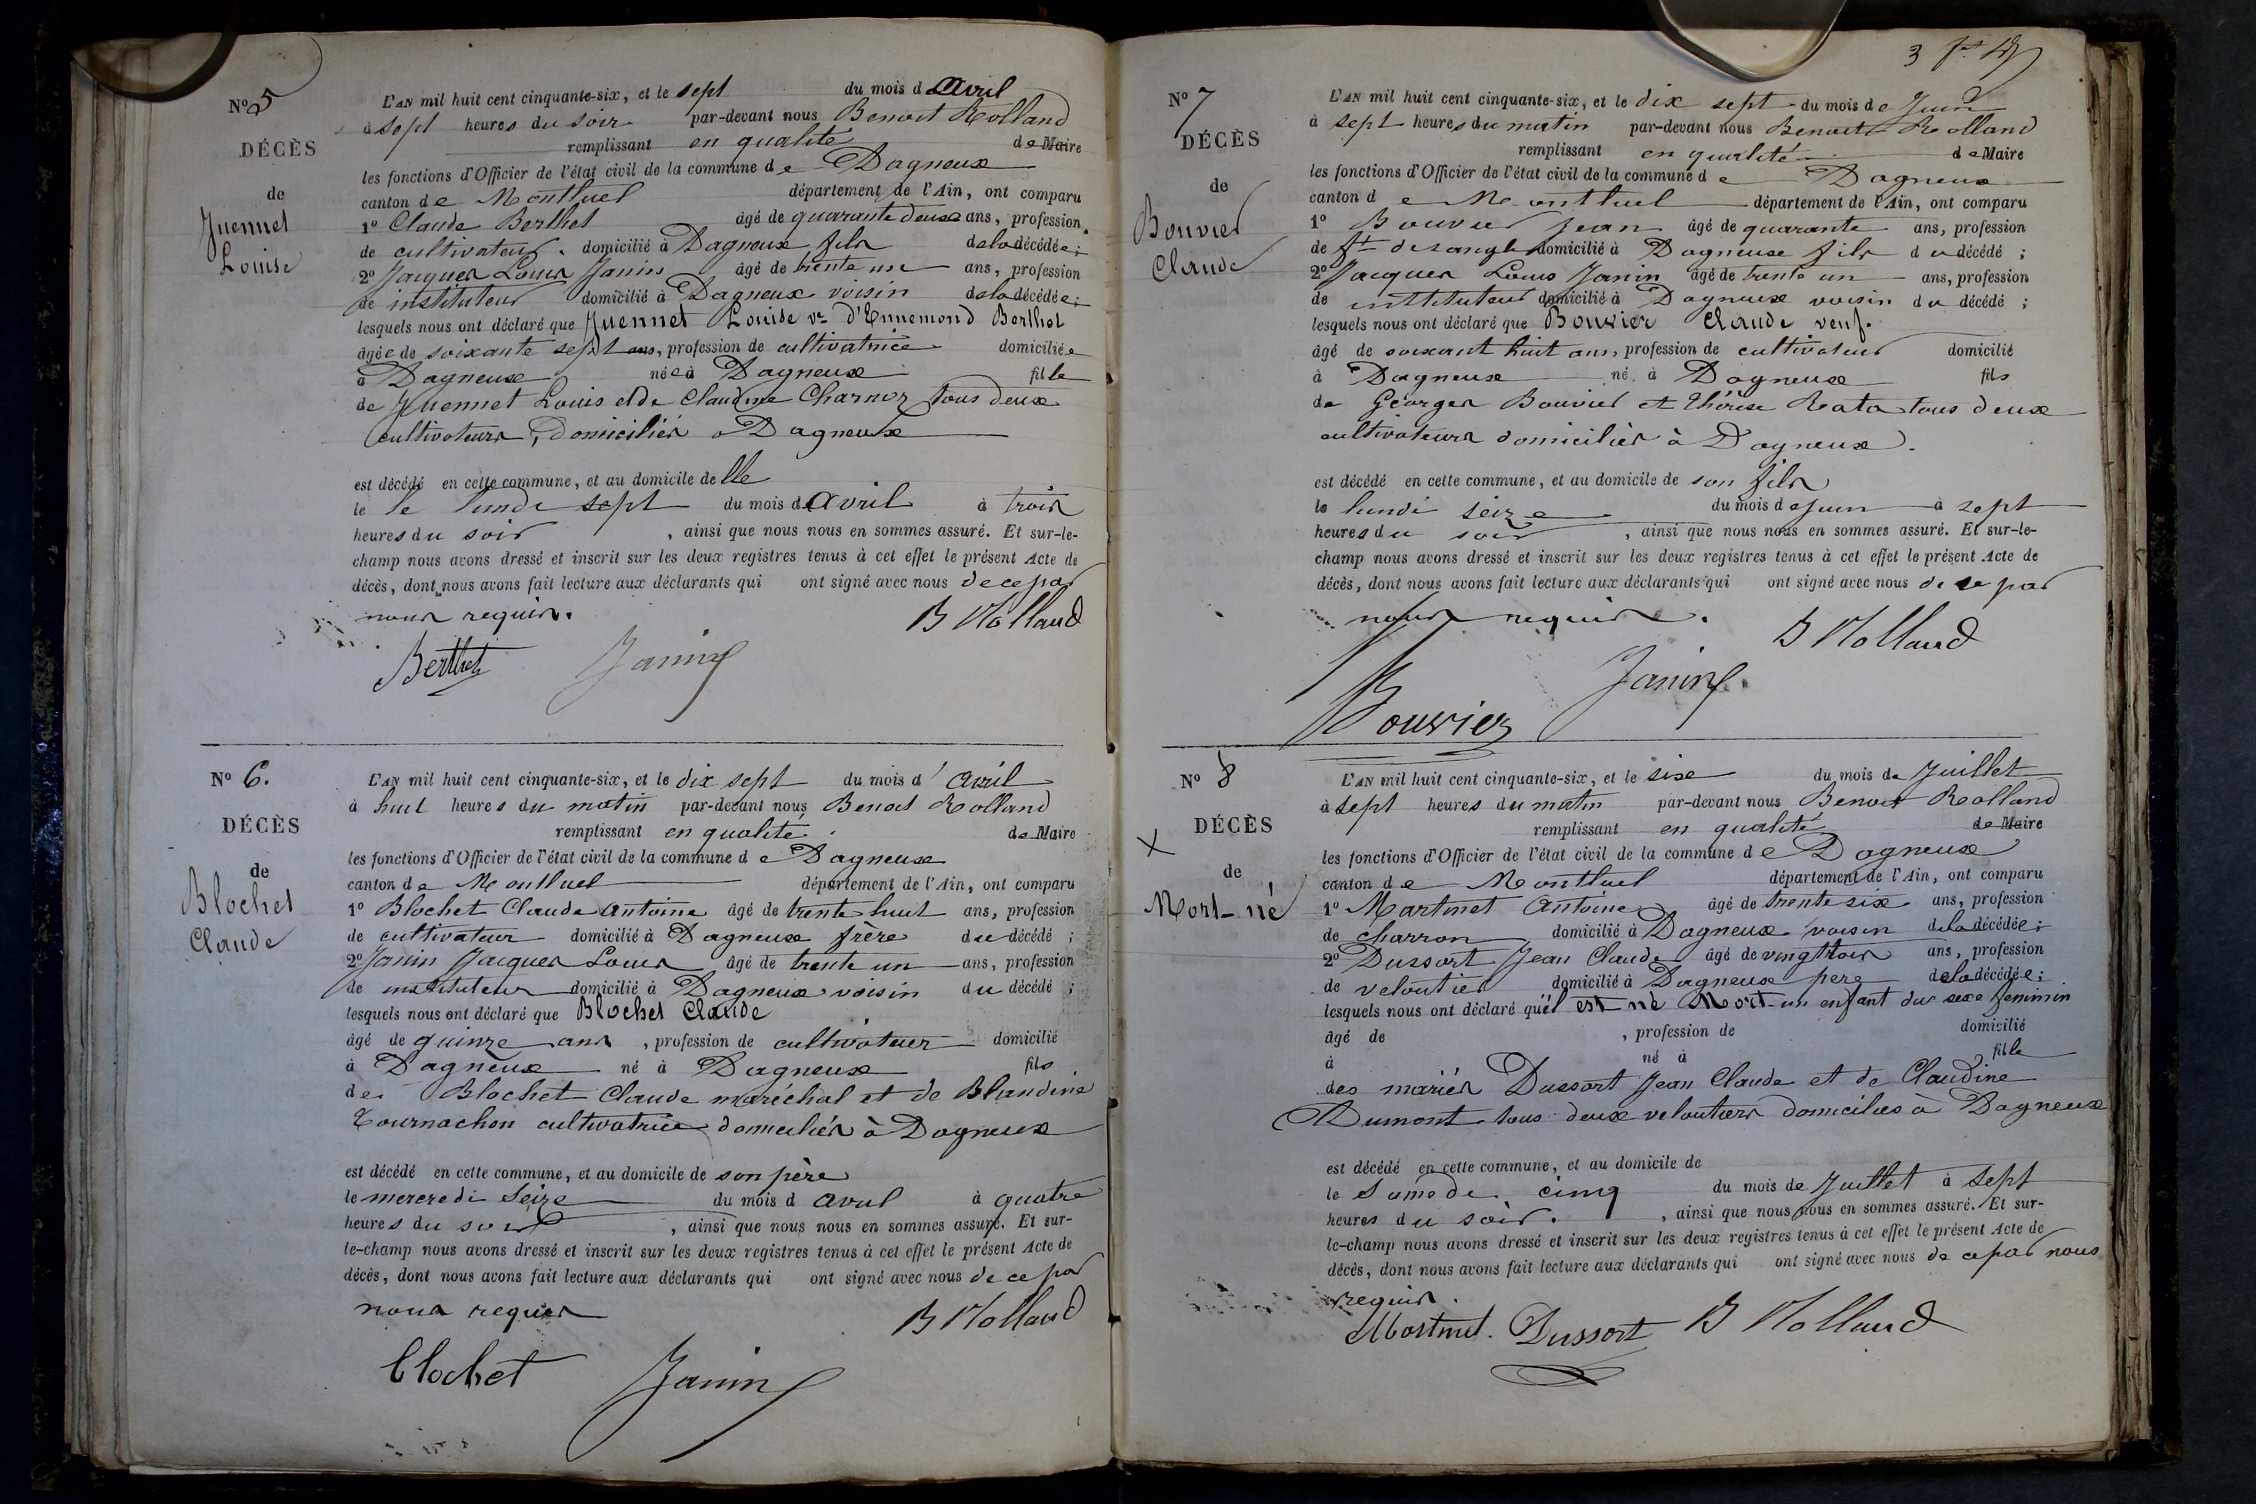 N° 5
DÉCÈS
de
Juennet
Louise
L'AN mil huit cent cinquante-six, et le sept du mois d'avril
à sept heures du soir par-devant nous Benoit Rolland
remplissant en qualité de Maire
les fonctions d'Officier de l'état civil de la commune de Dagneux
canton de Montluel département de l'Ain, ont comparu
1° Claude Berthet âgé de quarante deux ans, profession
de cultivateur. domicilié à Dagneux fils de la décédée;
2° Jacques Louis Janin âgé de trente un ans, profession
de instituteur domicilié à Dagneux voisin de la décédée;
lesquels nous ont déclaré que Juennet Louise ve d'Ennemond Berthet
âgée de soixante sept ans, profession de cultivatrice domiciliée
à Dagneux née à Dagneux fille
de Juennet Louis et de Claudine Charnoz tous deux
cultivateurs, domiciliés à Dagneux
est décédé en cette commune, et au domicile delle
le le lundi sept du mois d'avril à trois
heures du soir, ainsi que nous nous en sommes assuré. Et sur-le-
champ nous avons dressé et inscrit sur les deux registres tenus à cet effet le présent Acte de
décès, dont nous avons fait lecture aux déclarants qui ont signé avec nous de ce par
nous requis.
B Rolland
Berthet Janin
N° 6.
DÉCÈS
de
Blochet
Claude
L'AN mil huit cent cinquante-six, et le dix sept du mois d'avril
à huit heures du matin par-devant nous Benoit Rolland
remplissant en qualité de Maire
les fonctions d'Officier de l'état civil de la commune de Dagneux
canton de Montluel département de l'Ain, ont comparu
1° Blochet Claude Antoine âgé de trente huit ans, profession
de cultivateur domicilié à Dagneux frère du décédé;
2° Janin Jacques Louis âgé de trente un ans, profession
de instituteur domicilié à Dagneux voisin du décédé;
lesquels nous ont déclaré que Blochet Claude
âgé de quinze ans, profession de cultivateur domicilié
à Dagneux né à Dagneux fils
de Blochet Claude maréchal et de Blandine
Tournachon cultivatrice domiciliés à Dagneux
est décédé en cette commune, et au domicile de son père
le mercredi seize du mois d avril à quatre
heures du soir, ainsi que nous nous en sommes assuré. Et sur-
le-champ nous avons dressé et inscrit sur les deux registres tenus à cet effet le présent Acte de
décès, dont nous avons fait lecture aux déclarants qui ont signé avec nous de ce par
nous requis
B Rolland
Blochet Janin
3
N° 7
DÉCÈS
de
Bouvier
Claude
L'AN mil huit cent cinquante-six, et le dix sept du mois de Juin
à sept heures du matin par-devant nous Benoit Rolland
remplissant en qualité de Maire
les fonctions d'Officier de l'état civil de la commune de Dagneux
canton de Montluel département de l'Ain, ont comparu
1° Bouvier Jean âgé de quarante ans, profession
de domicilié à Dagneux fils du décédé;
2° Jacques Louis Janin âgé de trente un ans, profession
de instituteur domicilié à Dagneux voisin du décédé;
lesquels nous ont déclaré que Bouvier Claude veuf.
âgé de soixant huit ans, profession de cultivateur domicilié
à Dagneux né à Dagneux fils
de Georges Bouvier et Thérèse Rata tous deux
cultivateurs domiciliés à Dagneux.
est décédé en cette commune, et au domicile de son fils
le lundi seize du mois de Juin à sept
heures du soir, ainsi que nous nous en sommes assuré. Et sur-le-
champ nous avons dressé et inscrit sur les deux registres tenus à cet effet le présent Acte de
décès, dont nous avons fait lecture aux déclarants qui ont signé avec nous de ce par
nous requis.
B Rolland
Janin
Bouvier
N° 8
DÉCÈS
X
de
Mort-né
L'AN mil huit cent cinquante-six, et le six du mois de Juillet
à sept heures du matin par-devant nous Benoit Rolland
remplissant en qualité de Maire
les fonctions d'Officier de l'état civil de la commune de Dagneux
canton de Montluel département de l'Ain, ont comparu
1° Martinet Antoine âgé de trente six ans, profession
de charron domicilié à Dagneux voisin de la décédée;
2° Dussort Jean Claude âgé de vingt trois ans, profession
de veloutier domicilié à Dagneux père de la décédée;
lesquels nous ont déclaré qu'il est né Mort-un enfant du sexe feminin
âgé de , profession de domicilié
à né à fille
des mariés Dussort Jean Claude et de Claudine
Dumont tous deux veloutiers domiciliés à Dagneux
est décédé en cette commune, et au domicile de
le samedi cinq du mois de Juillet à sept
heures du soir., ainsi que nous nous en sommes assuré. Et sur-
le-champ nous avons dressé et inscrit sur les deux registres tenus à cet effet le présent Acte de
décès, dont nous avons fait lecture aux déclarants qui ont signé avec nous de ce par nous
requis.
Martinet. Dussort B Rolland